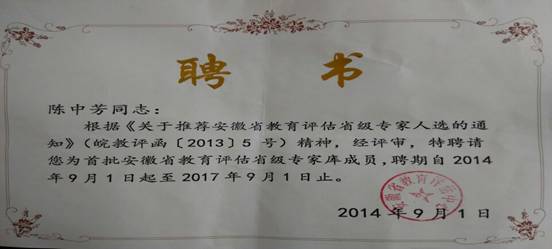 聘书
陈中芳同志：
根据《关于推荐安徽省教育评估省级专家人选的通
知》(皖教评函〔2013〕5 号) 精神，经评审，特聘请
您为首批安徽省教育评估省级专家库成员，聘期自 2014
年 9 月 1 日起至 2017 年 9 月 1 日止。
安徽省教育评估中心
2014 年 9 月 1 日